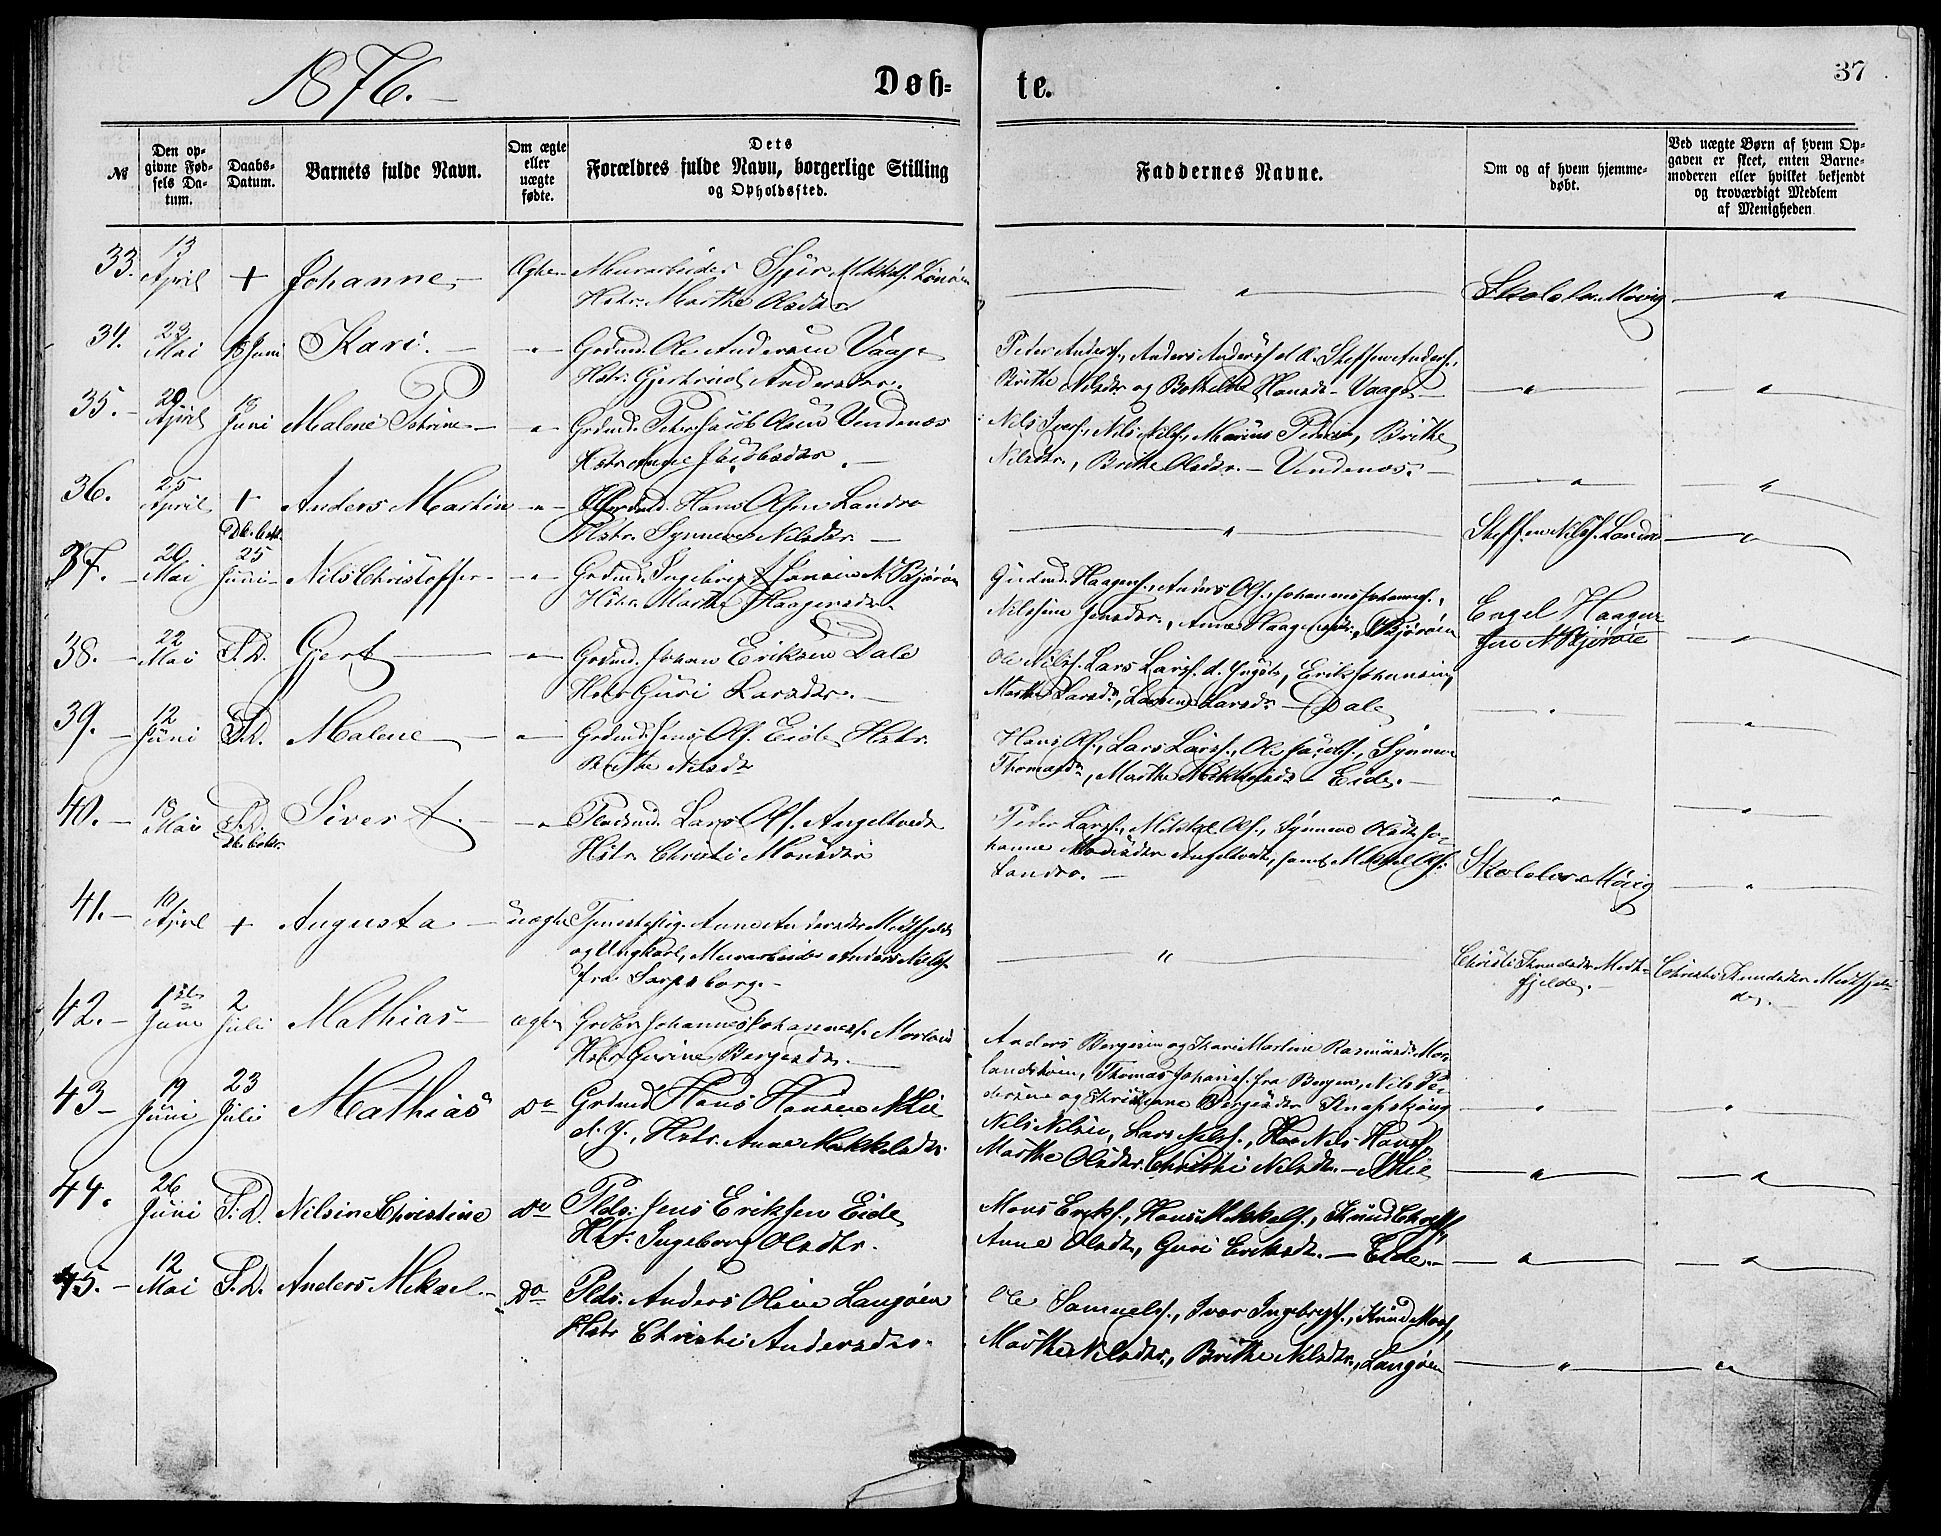 1876.
Døb-
te.
37
№
Den op-
givne Fød-
sels Da-
tum.
Daabs-
Datum.
Barnets fulde Navn.
Om ægte
eller
uægte
fødte.
Dets
Forældres fulde Navn, borgerlige Stilling
og Opholdssted.
Faddernes Navne.
Om og af hvem hjemme-
døbt.
Ved uægte Børn af hvem Op-
gaven er skeet, enten Barne-
moderen eller hvilket bekjendt
og troværdigt Medlem
af Menigheden
33. 13 April + Johanne Ægte Murarbeider Mikkels.
Hstr. Marthe Olsdtr
" Skolelr. Møvig "
34. 23 Mai 18 Juni Kari. " Grdmd. Ole Andersen Vaage
Hstr. Gjertrud Andersdtr.
Peder Anders., Anders Anders. d. Æ. Steffen Anders.,
Brithe Nilsdr. og Bothilde Hansdr. Vaage
" "
35. 29 April 18 Juni Malene Petrine " Grdmd. Peter Jacob Olsen Vindenæs
Hstr. Anne Jacobsdtr.
Nils Ivers., Nils Nils., Marius Peders., Brithe
Nilsdtr., Brithe Olsdtr. Vindenæs.
" "
36. 25 April + Anders Martin " Hans Olsen Landro
Hstr. Synneve Nilsdtr.
" Steffen Nils. "
37. 20 Mai 25 Juni Nils Christoffer " Grdmd. Ingebrigt Hansen N. Skjørøen
Hstr. Marthe Haagensdr.
Gudmd. Haagens., Anders Ols., Johannes Johannes.,
Nilsine Jensdtr., Anne Haagensdr., N. Skjørøen
Engel Haagens
N. Skjøröe "
38. 22 Mai S.D. Gjert " Grdmd. Johan Eriksen Dale
Hstr. Guri Larsdtr.
Ole Nils., Lars Lars. d. Yngste, Erik Johansen,
Marthe Larsdr., Larsdr. Dale
" "
39. 12 Juni S.D. Malene " Grdmd. Jens Ols. Eide Hstr.
Brithe Nilsdtr
Hans Ols., Lars Lars., Ole Jacobs., Synneve
Thomasdr., Marthe Mikkelsdr. Eide.
" "
40. 18 Mai S.D. Sivert " Pladsmd. Lars Ols. Angeltvedt
Hstr. Christi Monsdtr
Peder Lars., Mikkel Ols., Synneve Olsdtr. Jo-
hanne Madsdtr Angeltvedt, samt Mikkel Ols.
Landro.
Skolelr. Møvig "
41. 10 April + Augusta uægte Tjenestepige Anne Andersdtr Midtfjeld
og Ungkarl, Murarbeider Anders Nils.
fra Sarpsborg.
" Christi Knudsdtr Midt-
fjeld.
Christi Knudsdtr Midtfjeld
42. 1ste Juni 2 Juli Mathias ægte Grdbr. Johannes Johannes. Morland
Hstr Gurine Børgesdtr.
Anders Børgesen og Kari Martine Rasmusdr. Mor-
landstøen, Thomas Johans. fra Bergen, Nils Pe-
dersen og Kristianne Børgesdtr Knapskoug
" "
43 19 Juni 23 Juli Mathias Do Grdmd Hans Hansen N. Lie
N. Y., Hstr. Anne Mikkelsdtr.
Nils Nilsen, Lars Nils., Nils Hans.,
Marthe Olsdtr. Christi Nilsdtr. N. Lie
" "
44. 26 Juni S.D. Nilsine Christine Do Plds. Jens Eriksen Eide
Hst. Ingeborg Olsdtr.
Mons Eriks., Hans Mikkels., Knud
Anne Olsdtr, Guri Eriksdtr. Eide.
" "
45. 12 Mai S.D. Anders Mikael Do Plds. Anders Olsen Langøen
Hstr Christi Andersdtr.
Ole Samuels., Ivar Ingebrigts., Knud Mons.,
Marthe Nilsdtr., Brithe Nilsdtr, Langøen
" "